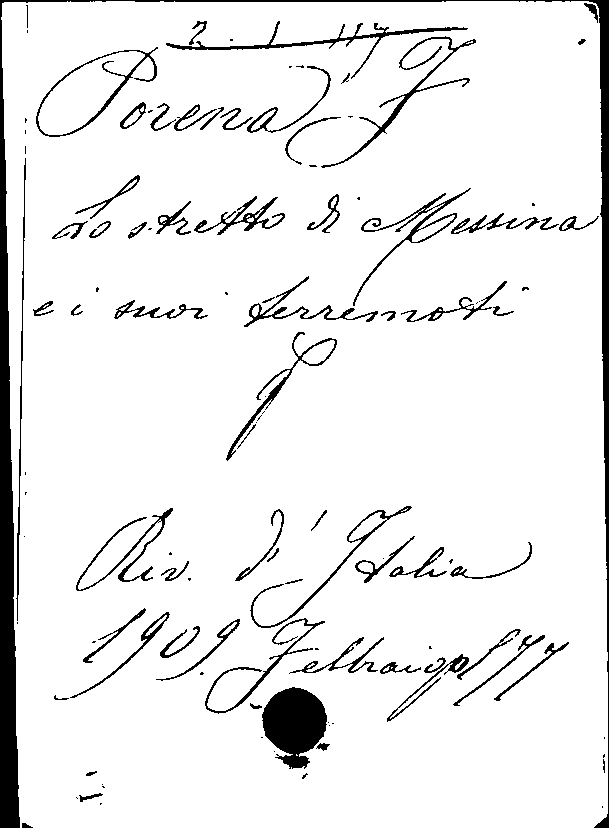 2. 1 117
Porena F
Lo stretto di Messina
e i suoi terremoti
Riv. d'Italia
1909. Febbraio p 177